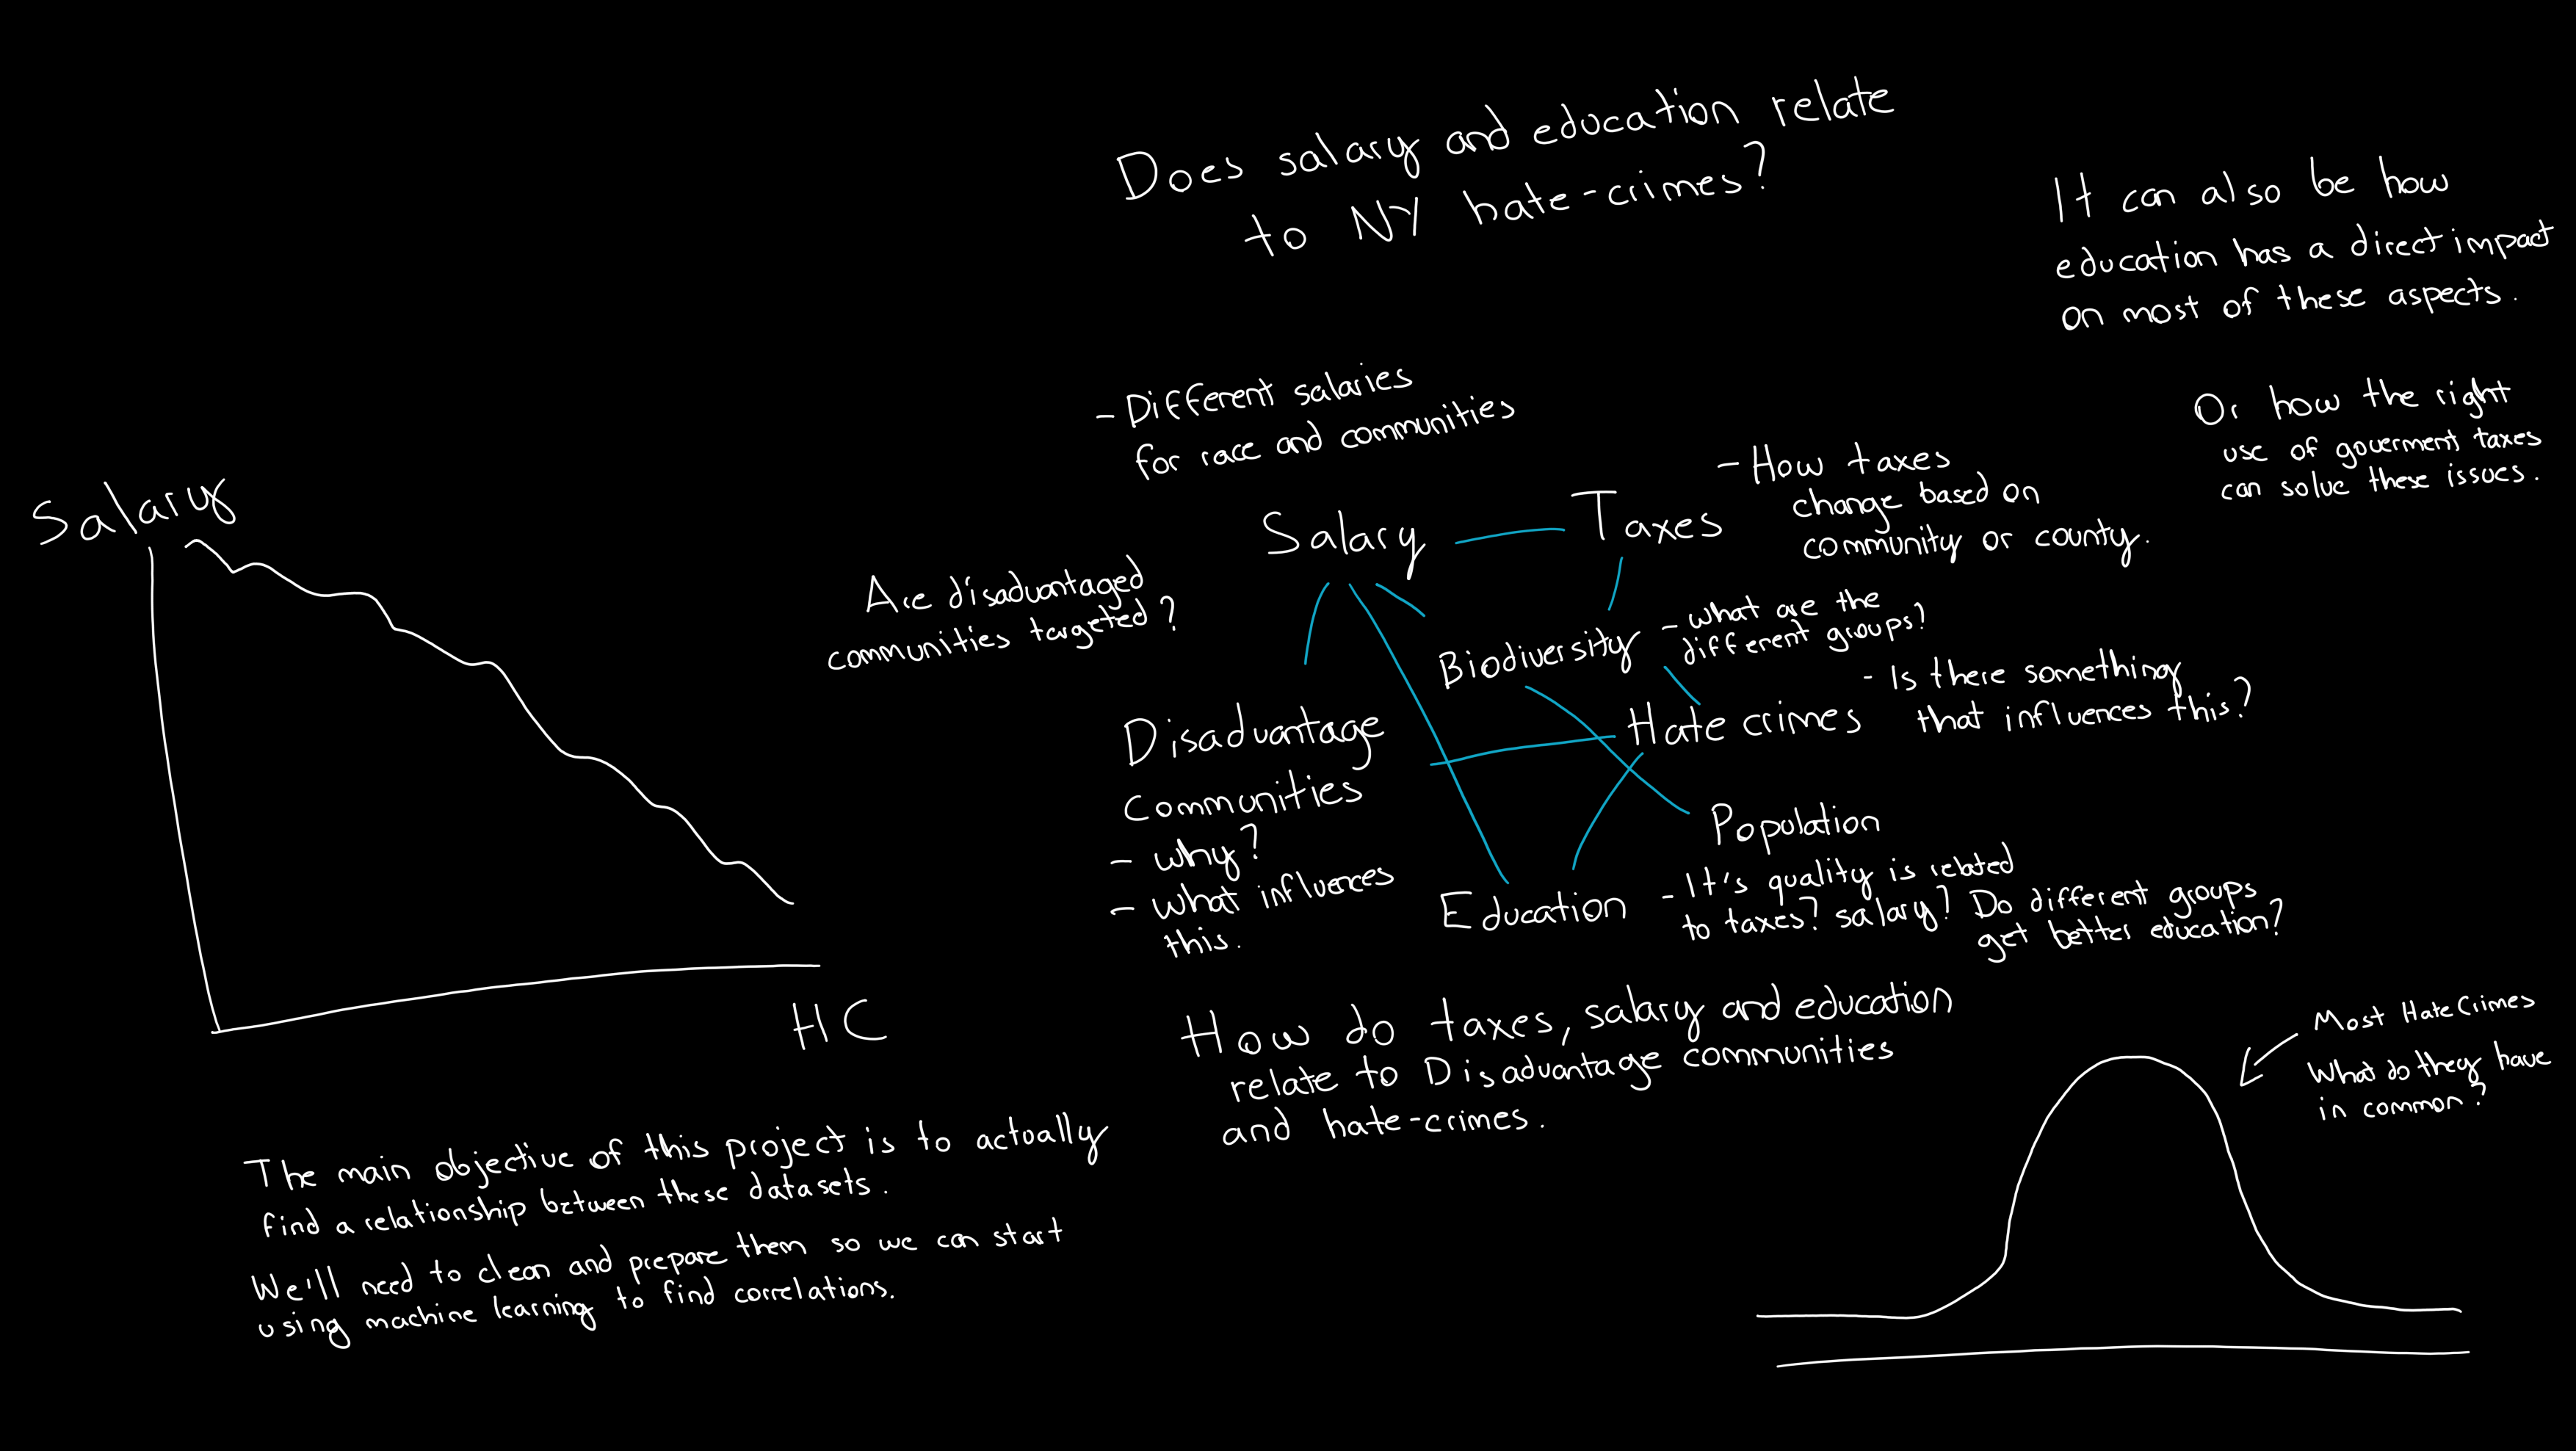 Does salary and education relate
to NY hate-crimes?
It can also be how
education has a direct impact
on most of these aspects.
Or how the right
use of goverment taxes
can solve these issues.
- Different salaries
for race and communities
Salary
Taxes
- How taxes
change based on
community or county.
Are disadvantaged
communities targeted?
Biodiversity
- what are the
different groups?
Hate crimes
- Is there something
that influences this?
Disadvantage
Communities
- why?
- what influences
this.
Population
Education
- It's quality is related
to taxes? salary? Do different groups
get better education?
Salary
HC
How do taxes, salary and education
relate to Disadvantage communities
and hate-crimes.
Most Hate Crimes
What do they have
in common?
The main objective of this project is to actually
find a relationship between these datasets.
We'll need to clean and prepare them so we can start
using machine learning to find correlations.